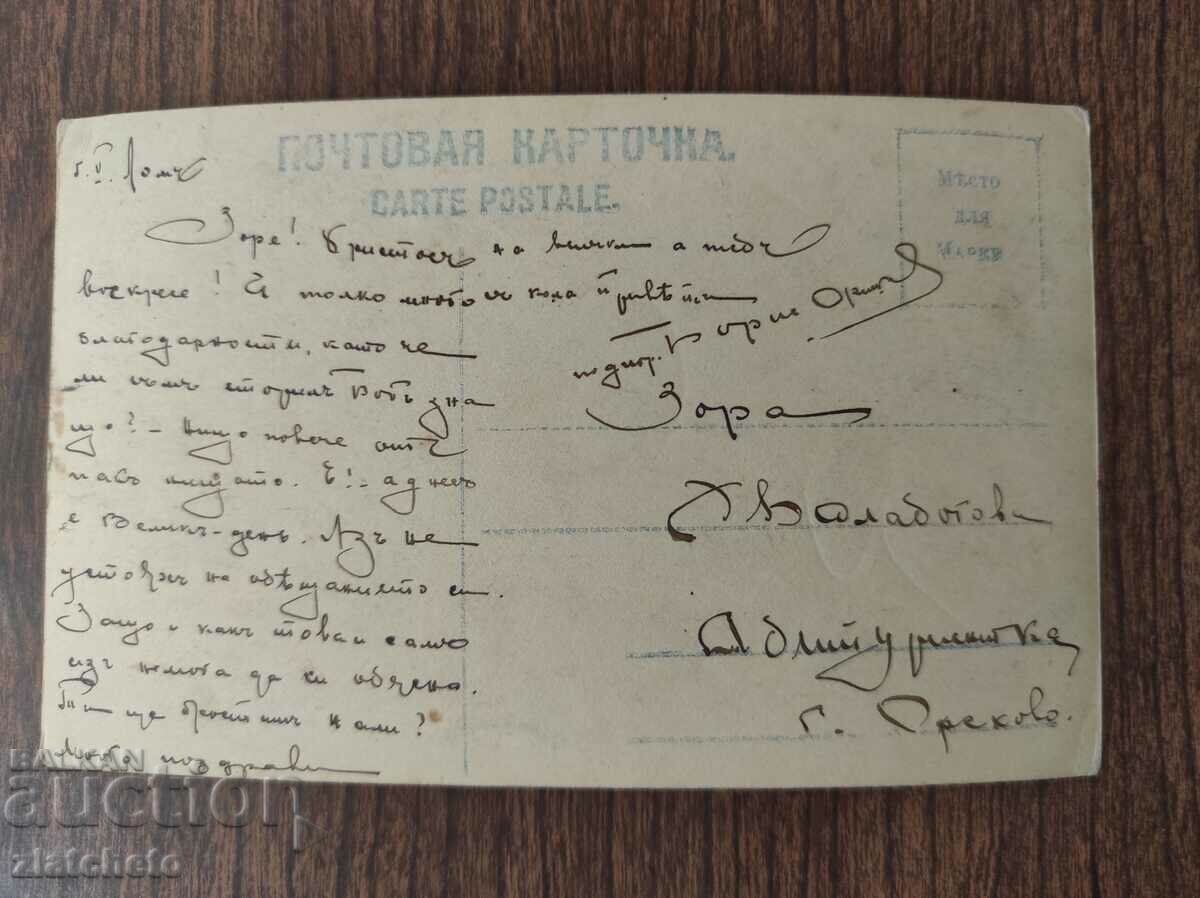 ПОЧТОВАЯ КАРТОЧКА.
CARTE POSTALE.
Мѣсто
для
Марки
6.V. Ломъ
Зоре! Христосъ на всички а тебъ
воскресе! И толко много съ кола привѣти
благодарности, като че
ли съмъ сторилъ Богъ зна
що? - Нищо повече отъ
пакъ нищото. Е! - а днесъ
е Великъ-день. Азъ не
устояхъ на обѣщанието си.
Защо и какъ това и само
азъ немога да си обясня.
Ти ще простишъ нали?
Много поздрави
подпор. Борис
Зора
Х В
Абитуриентка
г. Орехово.
BALKAN
auction
zlatcheto